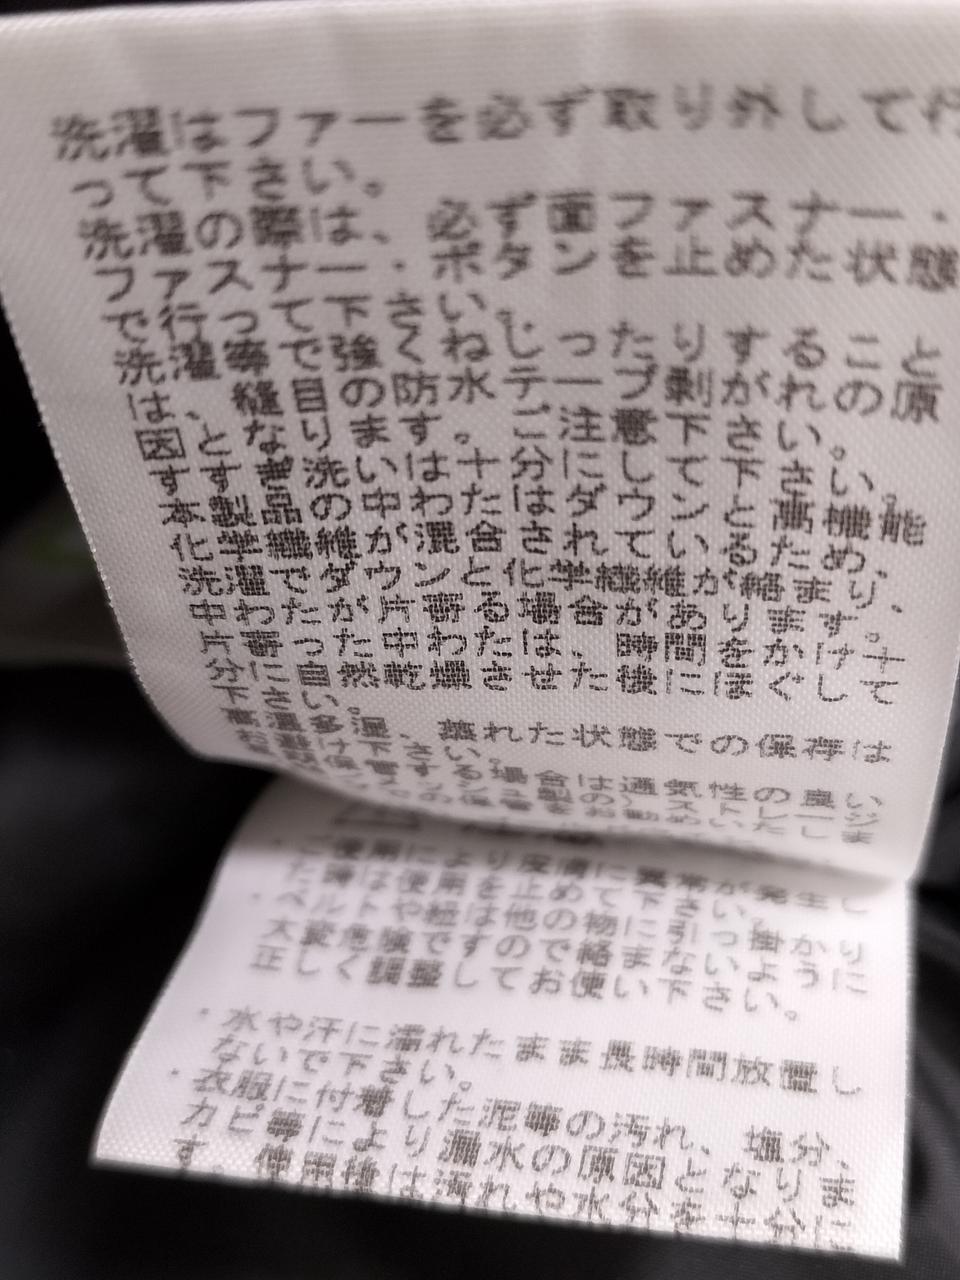 洗濯はファーを必ず取り外して行
って下さい。
洗濯の際は、必ず面ファスナー・
ファスナー・ボタンを止めた状態
で行って下さい。
洗濯等で強くねじったりすること
は、縫目の防水テープ剥がれの原
因となります。ご注意下さい。
すすぎ洗いは十分にして下さい。
本製品の中わたはダウンと高機能
化学繊維が混合されているため、
洗濯でダウンと化学繊維が絡まり、
中わたが片寄る場合があります。
片寄った中わたは、時間をかけ十
分に自然乾燥させた後にほぐして
下さい。
高温多湿、蒸れた状態での保存は
お避け下さい。
する場合は通気性の良い
使用により皮膚に異常が発生し
た時は使用を止めて下さい。
・ベルトや紐は他の物に引っ掛かり
大変危険ですので絡まないように
正しく調整してお使い下さい。
・水や汗に濡れたまま長時間放置し
ないで下さい。
・衣服に付着した泥等の汚れ、塩分、
カビ等により漏水の原因となりま
す。使用後は汚れや水分を十分に